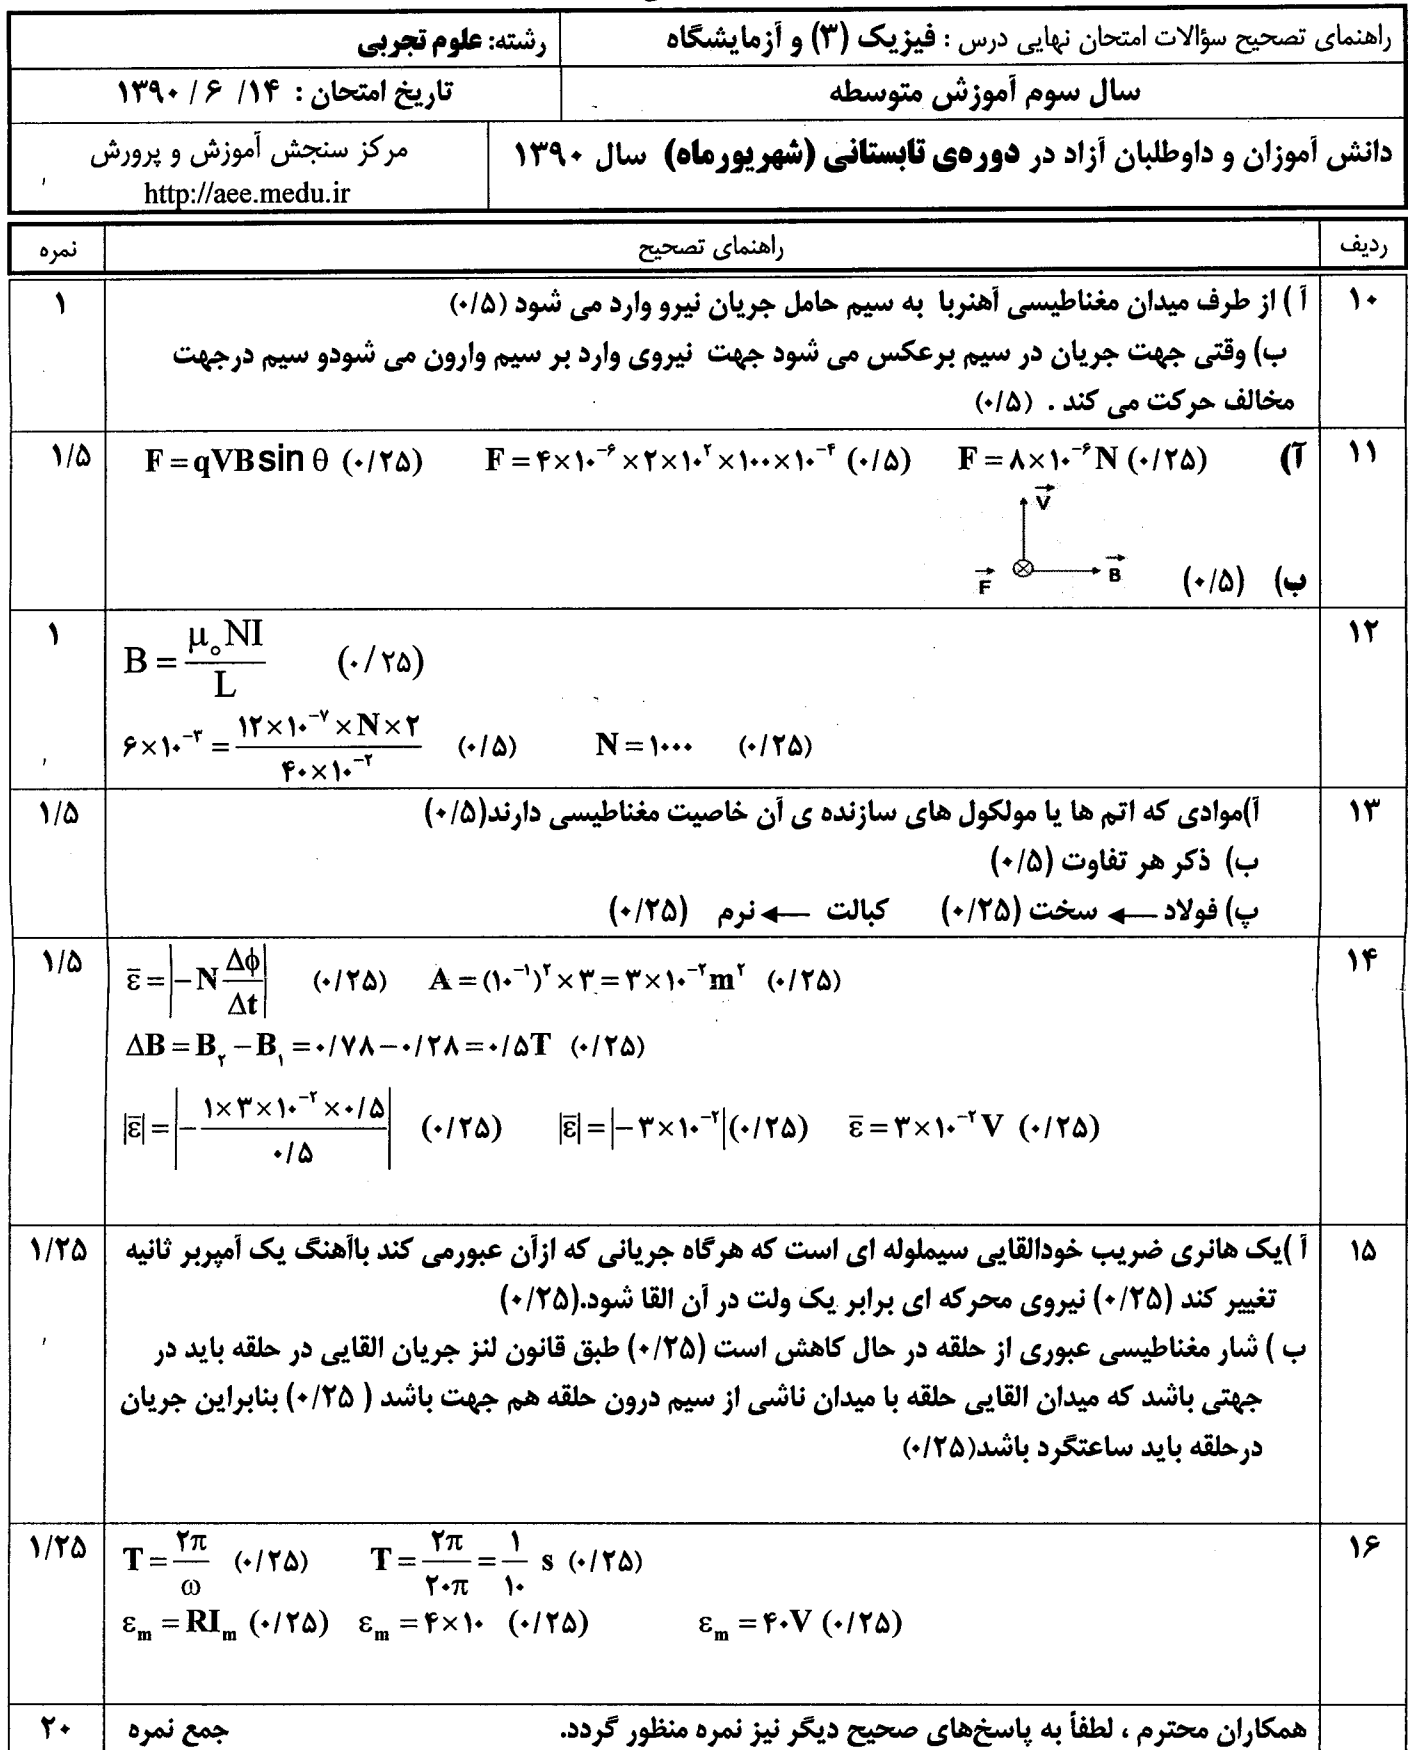 راهنمای تصحیح سؤالات امتحان نهایی درس : فیزیک (۳) و آزمایشگاه
رشته: علوم تجربی
سال سوم آموزش متوسطه
تاریخ امتحان : ۱۴/ ۶ / ۱۳۹۰
دانش آموزان و داوطلبان آزاد در دوره‌ی تابستانی (شهریورماه) سال ۱۳۹۰
مرکز سنجش آموزش و پرورش
http://aee.medu.ir
ردیف راهنمای تصحیح نمره
۱۰ آ ) از طرف میدان مغناطیسی آهنربا به سیم حامل جریان نیرو وارد می شود (۰/۵) ۱
ب) وقتی جهت جریان در سیم برعکس می شود جهت نیروی وارد بر سیم وارون می شودو سیم درجهت
مخالف حرکت می کند . (۰/۵)
۱۱ آ) F = qVB sin θ (۰/۲۵) F = ۴×۱۰⁻⁶×۲×۱۰²×۱۰۰×۱۰⁻⁴ (۰/۵) F = ۸×۱۰⁻⁶ N (۰/۲۵) ۱/۵
V
ب) (۰/۵) F ⊗ B
۱۲ B = μ₀NI / L (۰/۲۵) ۱
۶×۱۰⁻³ = ۱۲×۱۰⁻⁷×N×۲ / ۴۰×۱۰⁻² (۰/۵) N = ۱۰۰۰ (۰/۲۵)
۱۳ آ)موادی که اتم ها یا مولکول های سازنده ی آن خاصیت مغناطیسی دارند(۰/۵) ۱/۵
ب) ذکر هر تفاوت (۰/۵)
پ) فولاد ← سخت (۰/۲۵) کبالت ← نرم (۰/۲۵)
۱۴ ε̄ = |−N Δϕ/Δt| (۰/۲۵) A = (۱۰⁻¹)²×۳ = ۳×۱۰⁻² m² (۰/۲۵) ۱/۵
ΔB = B₂ − B₁ = ۰/۷۸ − ۰/۲۸ = ۰/۵T (۰/۲۵)
|ε̄| = |− ۱×۳×۱۰⁻²×۰/۵ / ۰/۵| (۰/۲۵) |ε̄| = |−۳×۱۰⁻²| (۰/۲۵) ε̄ = ۳×۱۰⁻² V (۰/۲۵)
۱۵ آ )یک هانری ضریب خودالقایی سیملوله ای است که هرگاه جریانی که ازآن عبورمی کند باآهنگ یک آمپربر ثانیه ۱/۲۵
تغییر کند (۰/۲۵) نیروی محرکه ای برابر یک ولت در آن القا شود.(۰/۲۵)
ب ) شار مغناطیسی عبوری از حلقه در حال کاهش است (۰/۲۵) طبق قانون لنز جریان القایی در حلقه باید در
جهتی باشد که میدان القایی حلقه با میدان ناشی از سیم درون حلقه هم جهت باشد ( ۰/۲۵) بنابراین جریان
درحلقه باید ساعتگرد باشد(۰/۲۵)
۱۶ T = ۲π/ω (۰/۲۵) T = ۲π/۲۰π = ۱/۱۰ s (۰/۲۵) ۱/۲۵
εₘ = RIₘ (۰/۲۵) εₘ = ۴×۱۰ (۰/۲۵) εₘ = ۴۰V (۰/۲۵)
همکاران محترم ، لطفاً به پاسخ‌های صحیح دیگر نیز نمره منظور گردد. جمع نمره ۲۰